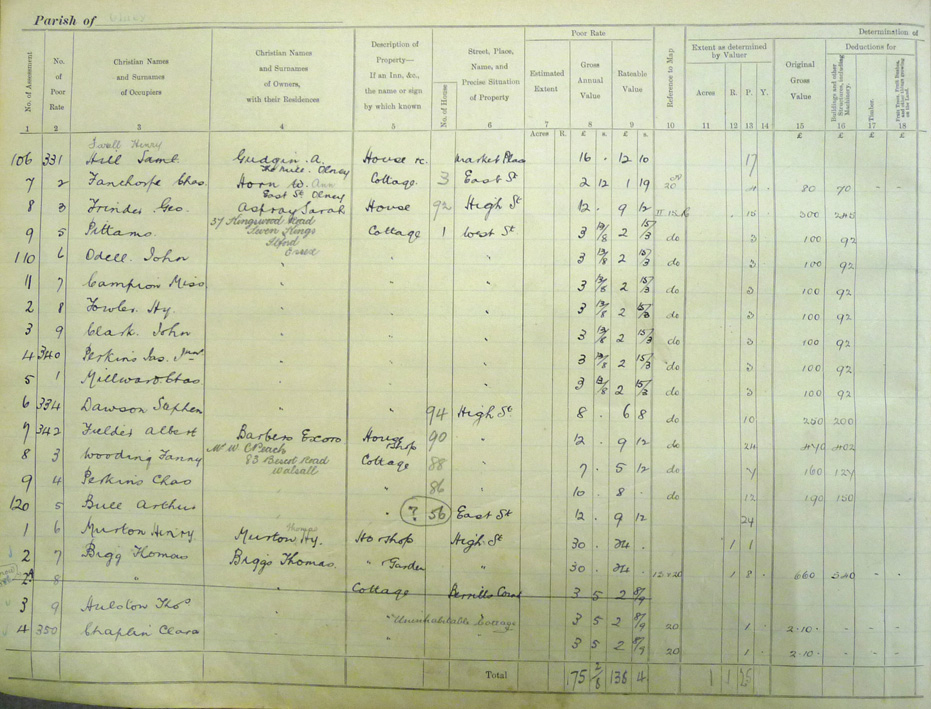 Parish of Olney
Poor Rate
Determination of
No. of Assessment
No. of Poor Rate
Christian Names and Surnames of Occupiers
Christian Names and Surnames of Owners, with their Residences
Description of Property— If an Inn, &c., the name or sign by which known
No. of House
Street, Place, Name, and Precise Situation of Property
Estimated Extent
Gross Annual Value
Rateable Value
Reference to Map
Extent as determined by Valuer
Original Gross Value
Deductions for
Buildings and other Structures, including Machinery.
Timber.
Fruit Trees, Fruit Bushes, and other things growing on the Land.
Acres R. P. Y.
1 2 3 4 5 6 7 8 9 10 11 12 13 14 15 16 17 18
Acres R. £ s. £ s. £ £ £ £
Henry
106 331 Hill Saml Gudgin A. House Market Place 16 . 12 10 17
Olney
7 2 Chas Horn W. Ann Cottage 3 East St 2 12 1 19 20 80 70 - -
East St Olney
8 3 Geo. Sarah House 92 High St 12 . 9 12 15 300 240
37 Kingswood Road
Seven Kings
Ilford
Essex
9 5 Pittams Cottage 1 West St 3 13/8 2 15/3 do 3 100 92
110 6 Odell John " " " 3 13/8 2 15/3 do 3 100 92
11 7 Campion Miss " " " 3 13/8 2 15/3 do 3 100 92
2 8 Fowler Hy. " " 3 13/8 2 15/3 do 3 100 92
3 9 Clark John " " 3 13/8 2 15/3 do 3 100 92
4 340 Perkins Jas. Junr " " 3 13/8 2 15/3 do 3 100 92
5 1 Millward Chas " " 3 13/8 2 15/3 do 3 100 92
6 334 Dawson Stephen " " 94 High St 8 . 6 8 do 10 250 200
7 342 Fielder Albert Barbers Exors House Shop 90 " 12 . 9 12 do 24 402
Mr W. C. Beach
83 Road
Walsall
8 3 Wooding Fanny Cottage 88 " 7 . 5 12 do 160 127
9 4 Perkins Chas " 86 " 10 . 8 . do 12 190 150
120 5 Bull Arthur " ? 56 East St 12 . 9 12 24
Thomas
1 6 Murton Henry Murton Hy. Ho & Shop High St 30 . 24 . 1 1
2 7 Bigg Thomas Biggs Thomas. " Garden " 30 . 24 . 1 8 660 340 - -
2A 8 " " Cottage Berrills Court 3 5 2 8/9
3 9 Aulston Thos " Uninhabitable Cottage 3 5 2 8/9 20 1 2·10· - -
4 350 Chaplin Clara " " 3 5 2 8/9 20 1 2·10· - -
Total 175 2/8 138 4 1 1 25